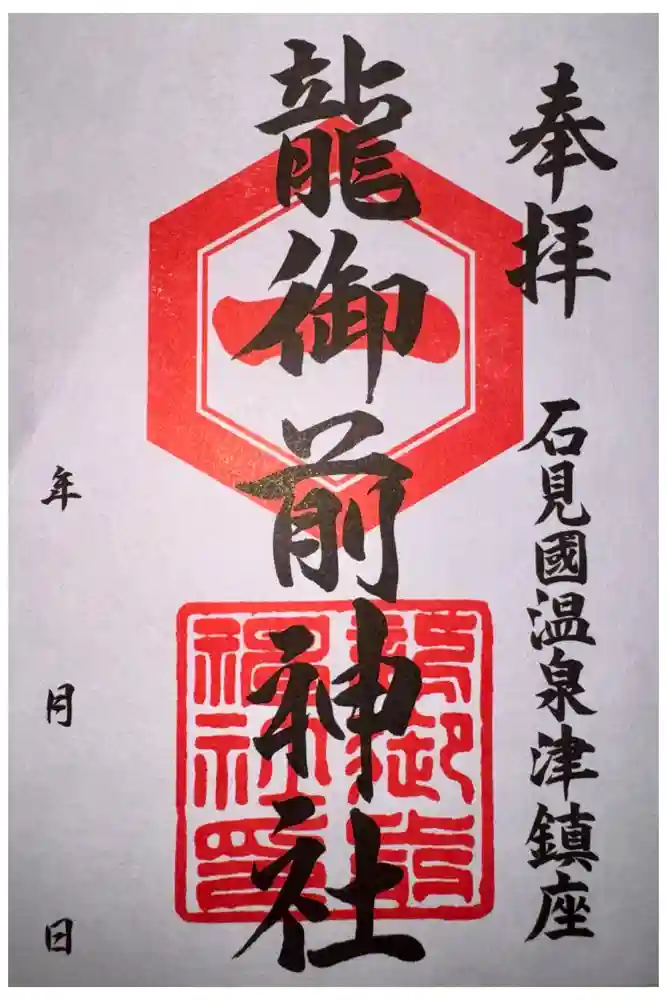 奉拝
石見國温泉津鎮座
龍御前神社
一
龍御前
神社印
年 月 日